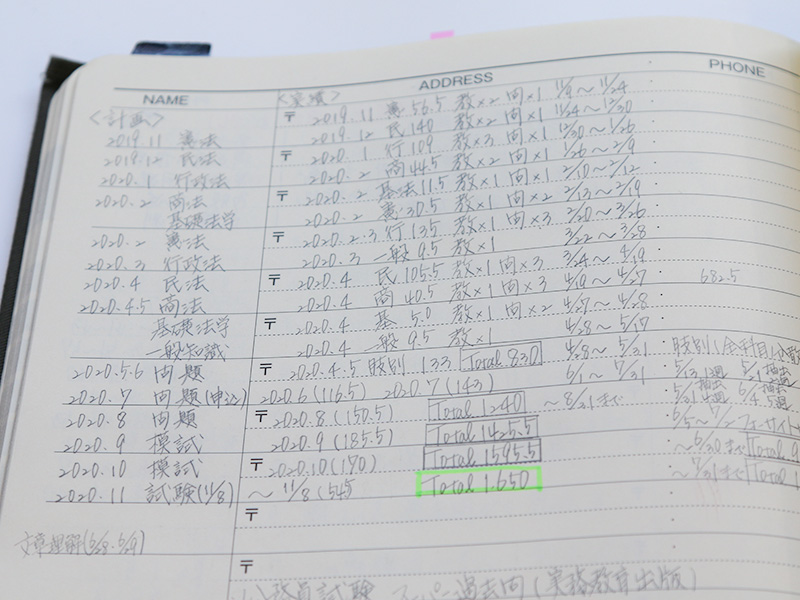 NAME ADDRESS PHONE
<計画> <実績>
2019.11 憲法 〒 2019.11 憲 56.5 教×2 問×1 11/9～11/24
2019.12 民法 2019.12 民 140 教×2 問×1 11/24～12/30
2020.1 行政法 〒 2020.1 行 109 教×3 問×1 12/30～1/26
2020.2 商法 2020.2 商 44.5 教×2 問×1 1/26～2/9
基礎法学 〒 2020.2 基法 11.5 教×1 問×1 2/10～2/12
2020.2 憲法 2020.2 憲 30.5 教×1 問×2 2/13～2/19
2020.3 行政法 〒 2020.2.3 行 135 教×1 問×3 2/20～3/26
2020.4 民法 2020.3 一般 9.5 教×1 3/22～3/28
2020.4.5 商法 〒 2020.4 民 105.5 教×1 問×3 3/24～4/19
基礎法学 2020.4 商 40.5 教×1 問×3 4/19～4/27 682.5
一般知識 〒 2020.4 基 5.0 教×1 問×2 4/27～4/28
2020.4 一般 9.5 教×1 4/8～5/17
2020.5.6 問題 〒 2020.4.5 肢別 133 Total 830 4/8～5/31 肢別(全科目)
2020.7 問題(申込) 2020.6(116.5) 2020.7(143) 6/1～7/31 5/13 1週 5/21 抽出
2020.8 問題 〒 2020.8(150.5) Total 1240 ～8/31まで 5/31 抽出 6/4
2020.9 模試 2020.9(185.5) Total 1425.5 6/5～7/2 フォーサイト
2020.10 模試 〒 2020.10(170) Total 1595.5 ～6/30まで Total
2020.11 試験(11/8) ～11/8(54.5 Total 1.650 ～7/31まで Total 1
〒
文章理解(6/28.6/29)
〒
公務員試験 スーパー過去問(実務教育出版)